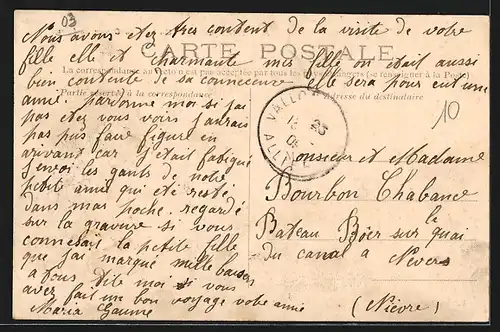 03
Nous avons etez tres content de la visite de votre
fille elle et charmante mes fille on était aussi
CARTE POSTALE
bien contente de sa connecence elle sera pour eut une
La correspondance au recto n'est pas acceptée par tous les pays étrangers (se renseigner à la Poste)
Partie réservée à la correspondance
Adresse du destinataire
amie. pardonne moi si j'ai
pas etez vous voirs j'aurais
pas pus faire figure en
arivant car j'etait fatigué
j'envoi les gants de notre
petite ami qui été resté
dans mas poche. regardé
sur la gravure si vous
connesait la petite fille
que j'ai marqué mille baisers
a tous dite moi si vous
avez fait un bon voyage votre amie
Maria Gaume
10
VALLON
ALLIER
Monsieur et Madame
Bourbon Chabance
Bateau Bòer sur le quai
du canal a Nevers
(Nièvre)